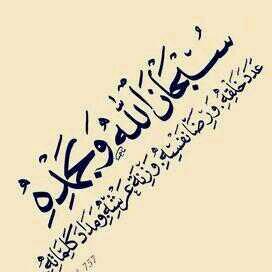 سُبْحَانَ اللهِ وَبِحَمْدِهِ
عَدَدَ خَلْقِهِ وَرِضَا نَفْسِهِ وَزِنَةَ عَرْشِهِ وَمِدَادَ كَلِمَاتِهِ